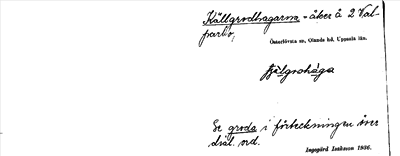 Källgrodhagarna - åker å 2 Val-
parbo,
Österlövsta sn, Olands hd. Uppsala län.
Se groda i förteckningen över
dial. ord.
Ingegärd Isaksson 1936.